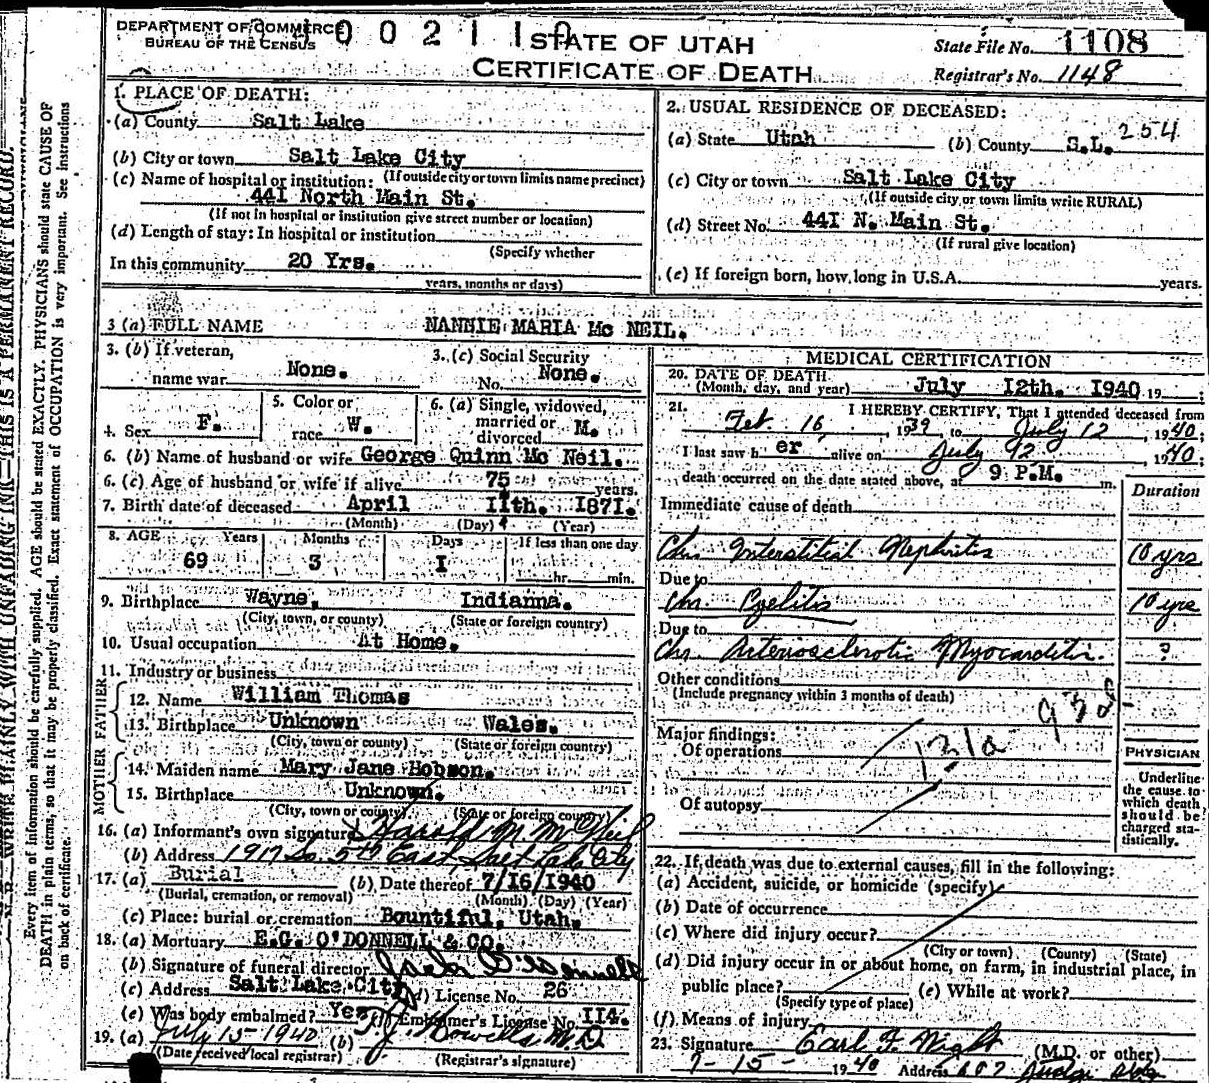 DEPARTMENT OF COMMERCE
BUREAU OF THE CENSUS
0 0 2 1 1
STATE OF UTAH
CERTIFICATE OF DEATH
State File No. 1108
Registrar's No. 1148
WRITE PLAINLY, WITH UNFADING INK—THIS IS A PERMANENT RECORD.
Every item of information should be carefully supplied. AGE should be stated EXACTLY. PHYSICIANS should state CAUSE OF
DEATH in plain terms, so that it may be properly classified. Exact statement of OCCUPATION is very important. See instructions
on back of certificate.
1. PLACE OF DEATH:
(a) County Salt Lake
(b) City or town Salt Lake City
(If outside city or town limits name precinct)
(c) Name of hospital or institution:
441 North Main St.
(If not in hospital or institution give street number or location)
(d) Length of stay: In hospital or institution
(Specify whether
In this community 20 Yrs.
years, months or days)
2. USUAL RESIDENCE OF DECEASED:
(a) State Utah (b) County S.L. 254
(c) City or town Salt Lake City
(If outside city or town limits write RURAL)
(d) Street No. 441 N. Main St.
(If rural give location)
(e) If foreign born, how long in U.S.A. years.
3 (a) FULL NAME NANNIE MARIA Mc NEIL.
3. (b) If veteran,
name war None.
3. (c) Social Security
No. None.
4. Sex F.
5. Color or
race W.
6. (a) Single, widowed,
married or
divorced M.
6. (b) Name of husband or wife George Quinn Mc Neil.
6. (c) Age of husband or wife if alive 75 years.
7. Birth date of deceased April 11th. 1871.
(Month) (Day) (Year)
8. AGE Years Months Days If less than one day
69 3 1 hr. min.
9. Birthplace Wayne, Indianna.
(City, town, or county) (State or foreign country)
10. Usual occupation At Home.
11. Industry or business
FATHER
12. Name William Thomas
13. Birthplace Unknown Wales.
(City, town or county) (State or foreign country)
MOTHER
14. Maiden name Mary Jane Hobson.
15. Birthplace Unknown.
(City, town or county) (State or foreign country)
16. (a) Informant's own signature Harold M. McNeil
(b) Address 1917 So. 5th East Salt Lake City
17. (a) Burial (b) Date thereof 7/16/1940
(Burial, cremation, or removal) (Month) (Day) (Year)
(c) Place: burial or cremation Bountiful, Utah.
18. (a) Mortuary E.G. O'DONNELL & CO.
(b) Signature of funeral director Jack O'Donnell
(c) Address Salt Lake City (d) License No. 26
(e) Was body embalmed? Yes (f) Embalmer's License No. 114.
19. (a) July 15-1940 (b) M.D.
(Date received local registrar) (Registrar's signature)
MEDICAL CERTIFICATION
20. DATE OF DEATH
(Month, day, and year) July 12th. 1940 19 ;
21. I HEREBY CERTIFY, That I attended deceased from
Feb. 16, 1939 to July 12, 1940;
I last saw h er alive on July 12 1940;
death occurred on the date stated above, at 9 P.M. m.
Duration
Immediate cause of death
Chr. Interstitial Nephritis 10 yrs
Due to
Chr. Pyelitis 10 yrs
Due to
Chr. Arteriosclerotic Myocarditis. ?
Other conditions
(Include pregnancy within 3 months of death)
Major findings:
Of operations 131a
Of autopsy
PHYSICIAN
Underline
the cause to
which death
should be
charged sta-
tistically.
22. If death was due to external causes, fill in the following:
(a) Accident, suicide, or homicide (specify)
(b) Date of occurrence
(c) Where did injury occur?
(City or town) (County) (State)
(d) Did injury occur in or about home, on farm, in industrial place, in
public place? (e) While at work?
(Specify type of place)
(f) Means of injury
23. Signature Earl F. Wight (M.D. or other)
7-15- 1940 Address 607 Judge Bldg